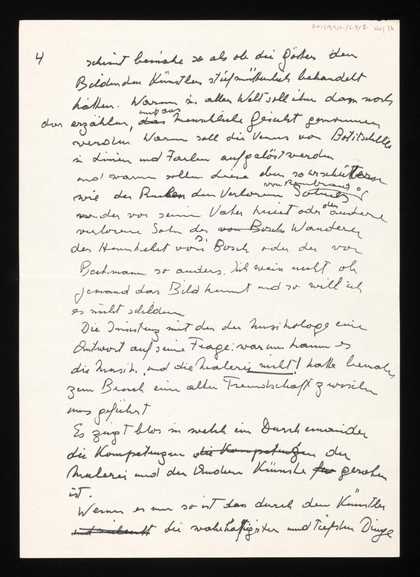 4
scheint beinahe so als ob die Götter den
Bildenden Künstler stiefmütterlich behandelt
hätten. Warum in aller Welt soll ihm dann noch
der erzählen, und das Menschliche genommen
werden Warum soll die Venus von Botticelli
in Linien und Farben aufgelöst werden
und warum sollen diese eben so erschüttern
wie der Rücken des Verlorenen Sohnes von Rembrandt
der vor seinem Vater kniet oder der andere
verlorene Sohn des von Bosch Wanderer
der Heimkehrt von Bosch oder der von
Beckmann so anders. Ich weiss nicht, ob
jemand das Bild kennt und so will ich
es nicht schildern
Die Inbrunst mit der der Musikologe eine
Antwort auf seine Frage: warum kann es
die Musik, und die Malerei nicht! hatte beinahe
zum Bruch einer alten Freundschaft zwischen
uns geführt
Es zeugt blos in welch ein Durcheinander
die Kompetenzen die Kompetenzen der
Malerei und der Anderen Künste geraten
ist.
Wenn es nur so ist das durch den Künstler
die wahrhaftigsten und tiefsten Dinge